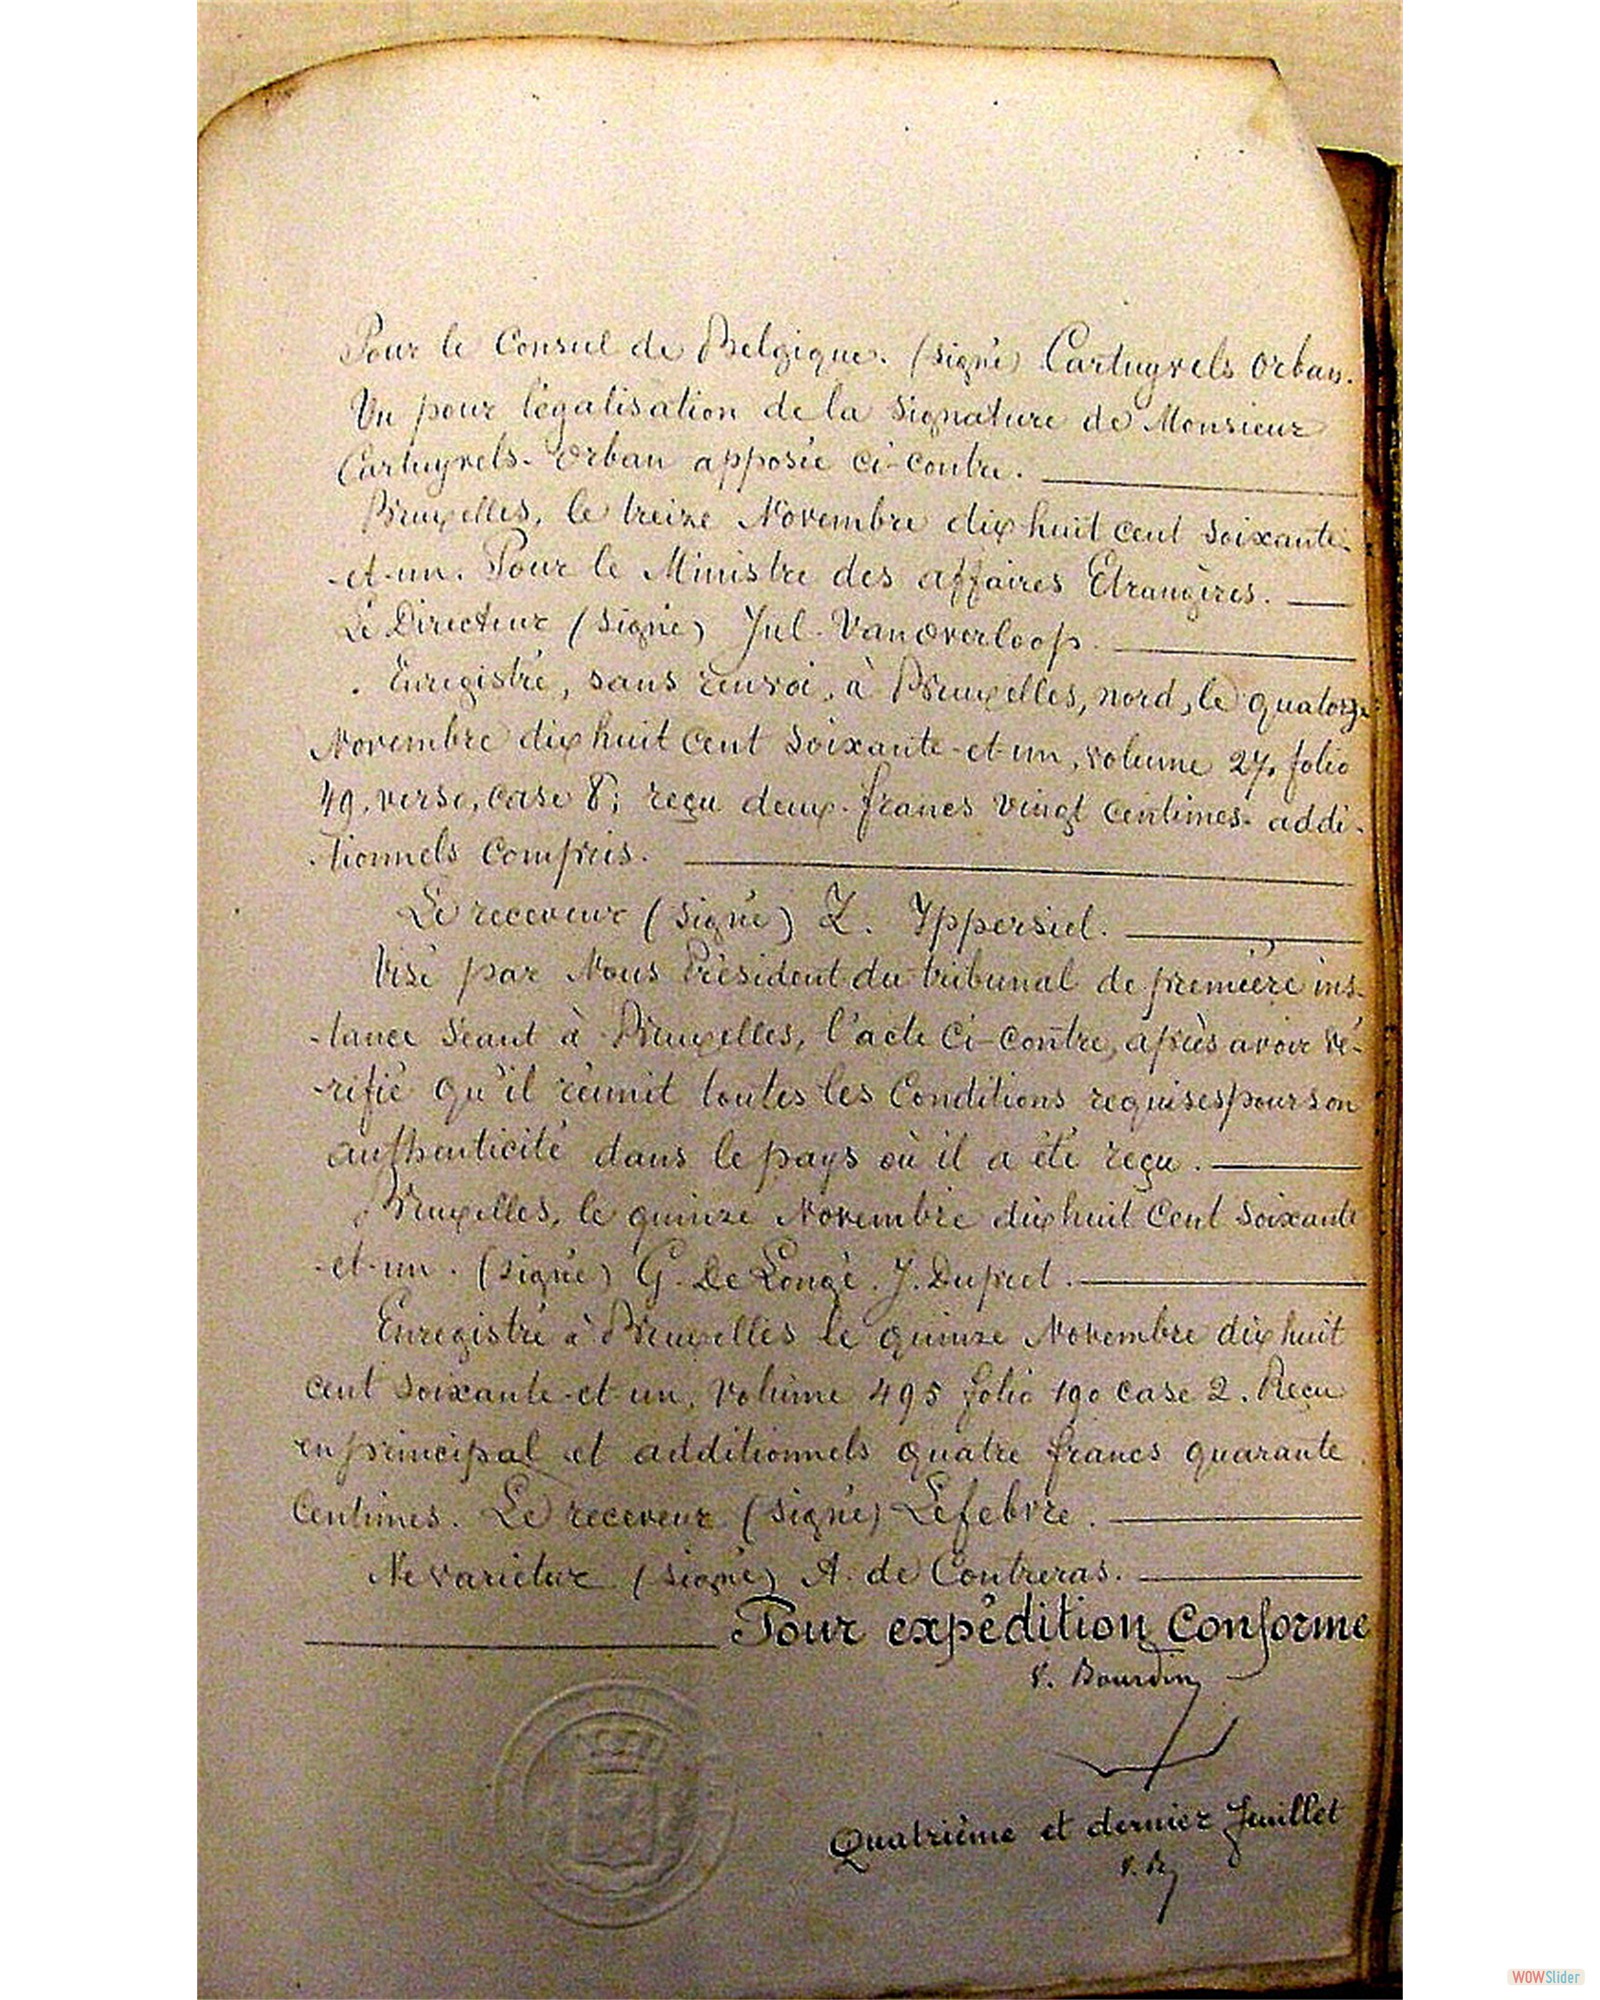 Pour le Consul de Belgique. (signé) Cartuyvels Orban.
Vu pour légalisation de la Signature de Monsieur
Cartuyvels-Orban apposée ci-contre.
Bruxelles, le treize Novembre dix huit cent soixante-
-et-un. Pour le Ministre des affaires Etrangères.
Le Directeur (signé) Jul. Van Overloop.
Enregistré, sans renvoi, à Bruxelles, nord, le quatorze
Novembre dix huit cent soixante-et-un, volume 27, folio
49, verso, case 8; reçu deux francs vingt centimes addi-
-tionnels compris.
Le receveur (signé) Z. Ippersiel.
Visé par Nous Président du tribunal de première ins-
-tance séant à Bruxelles, l'acte ci-contre, après avoir vé-
-rifié qu'il réunit toutes les Conditions requises pour son
authenticité dans le pays où il a été reçu.
Bruxelles, le quinze Novembre dix huit Cent soixante
-et-un. (signé) G. De Longé. J. Dupret.
Enregistré à Bruxelles le quinze Novembre dix huit
cent soixante-et-un, volume 495 folio 190 case 2. Reçu
en principal et additionnels quatre francs quarante
Centimes. Le receveur (signé) Lefebvre.
Ne varietur (signé) A. de Contreras.
Pour expédition Conforme
V. Bourdin
Quatrième et dernier feuillet
V. B
WOWSlider